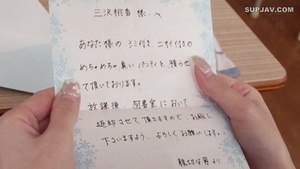 SUPJAV.COM
三沢桃香 様へ
あなた様の シミ付き ニオイ付きの
めちゃめちゃ臭い パンティを 預らせ
て頂いております。
放課後、図書室において
返却させて頂きますので、お越し
下さいますよう、よろしくお願いします。
より